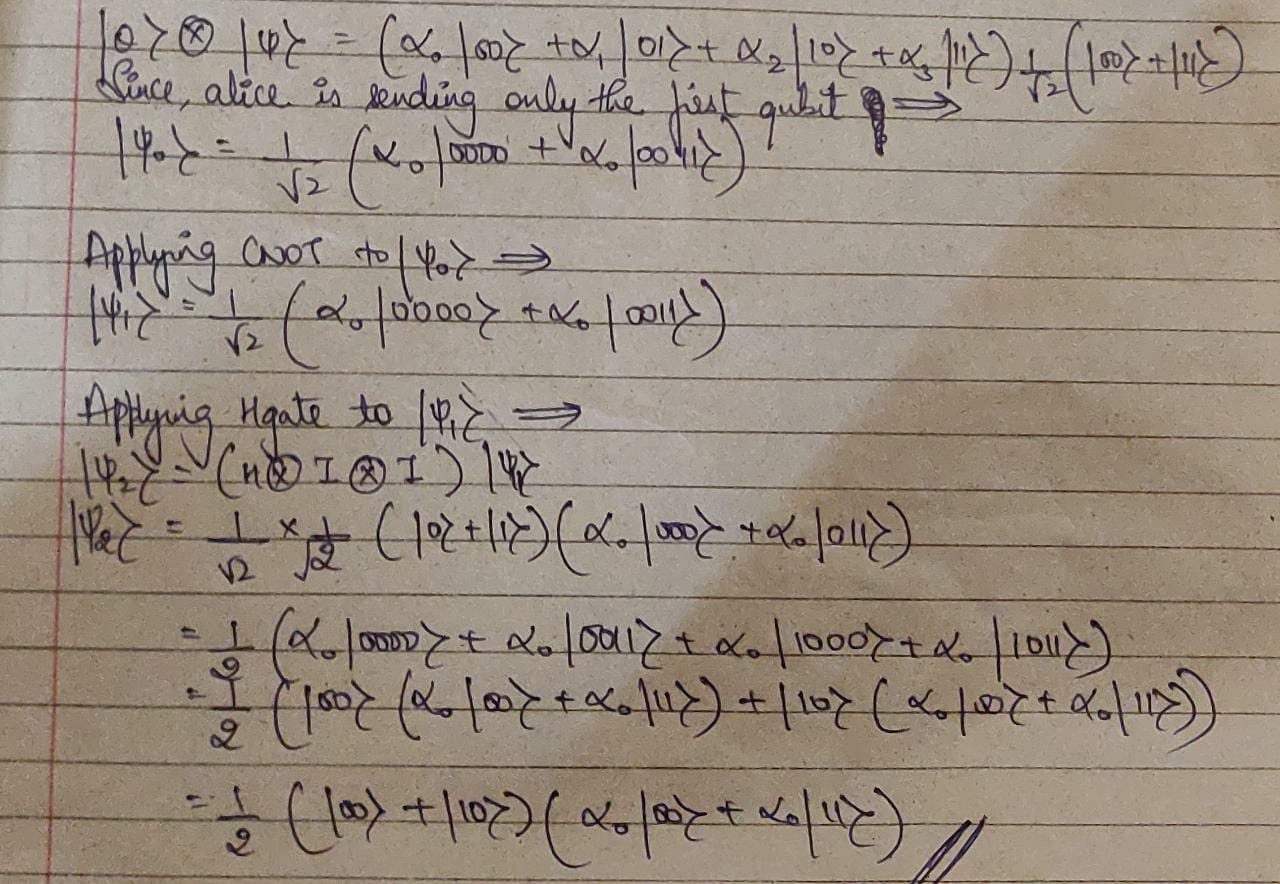 |φ⟩ ⊗ |ψ⟩ = (α₀|00⟩ + α₁|01⟩ + α₂|10⟩ + α₃|11⟩) 1/√2 (|00⟩ + |11⟩)
Since, alice is sending only the first qubit ⇒
|ψ₀⟩ = 1/√2 (α₀|0000 + α₀|0011⟩)
Applying CNOT to |ψ₀⟩ ⇒
|ψ₁⟩ = 1/√2 (α₀|0000⟩ + α₀|0011⟩)
Applying Hgate to |ψ₁⟩ ⇒
|ψ₂⟩ = (H ⊗ I ⊗ I) |ψ₁⟩
|ψ₂⟩ = 1/√2 × 1/√2 (|0⟩ + |1⟩) (α₀|000⟩ + α₀|011⟩)
= 1/2 (α₀|0000⟩ + α₀|0011⟩ + α₀|1000⟩ + α₀|1011⟩)
= 1/2 (|00⟩ (α₀|00⟩ + α₀|11⟩) + |10⟩ (α₀|00⟩ + α₀|11⟩))
= 1/2 (|00⟩ + |10⟩) (α₀|00⟩ + α₀|11⟩) //